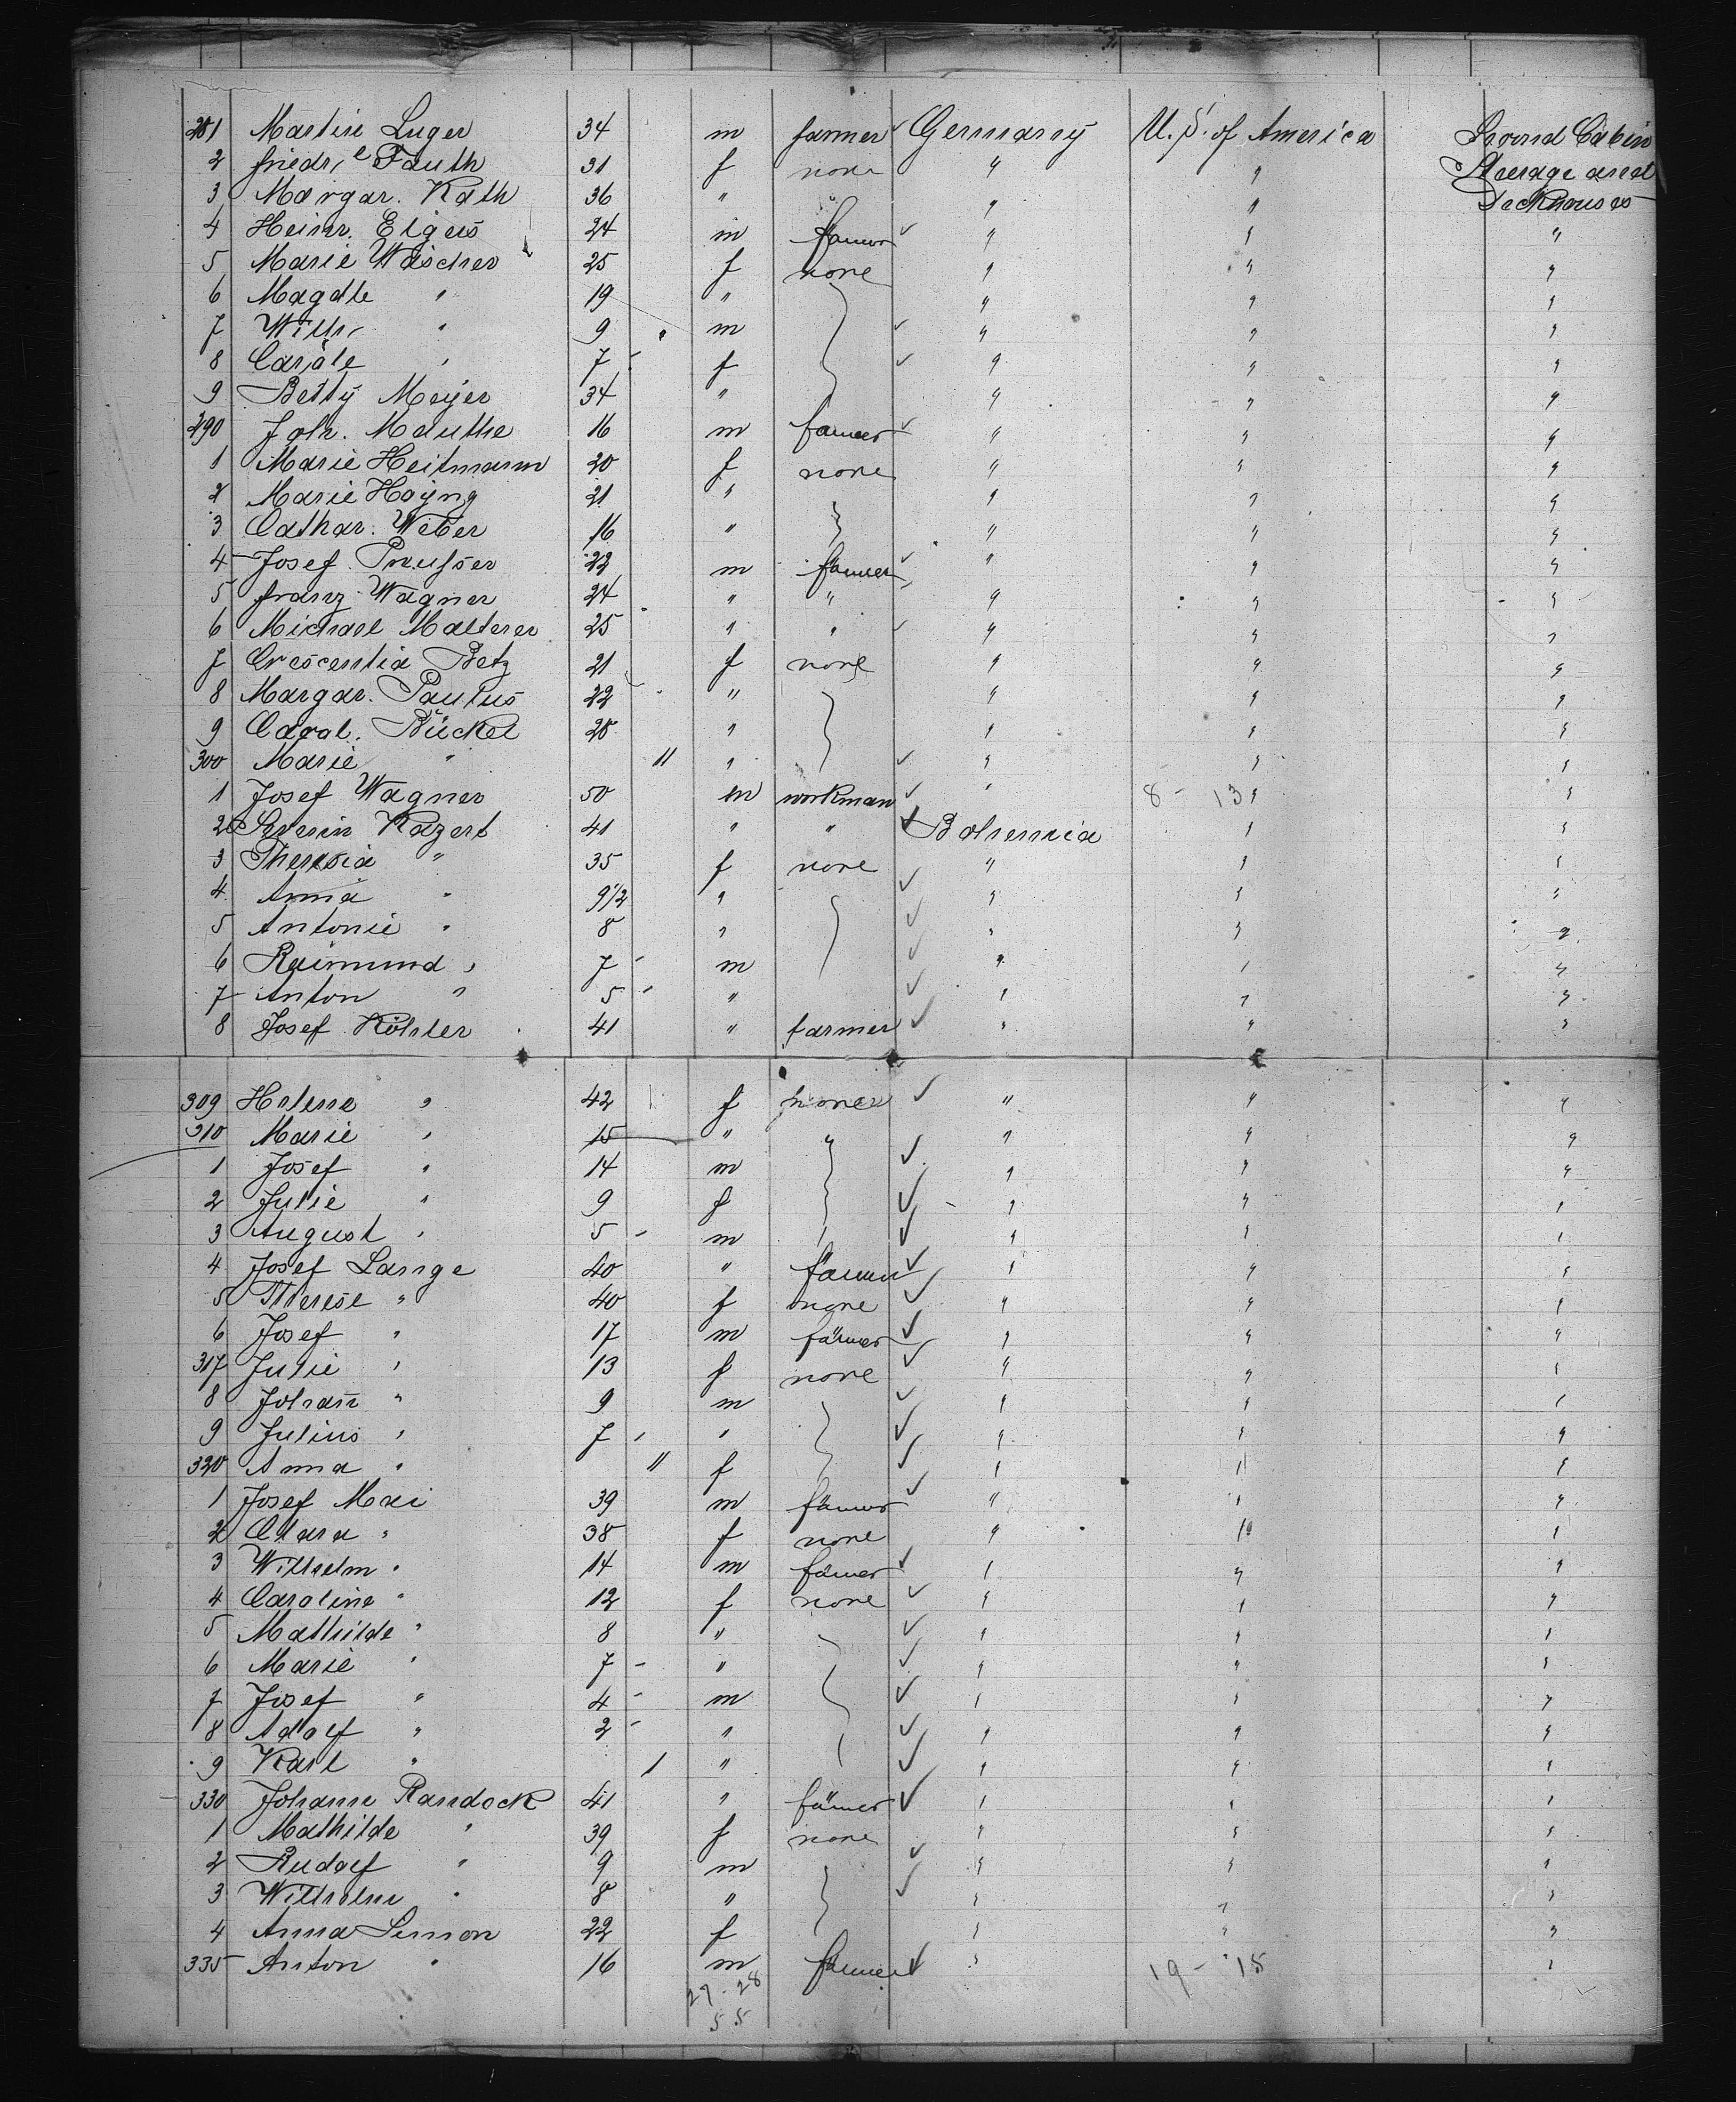 281 Martin Luger 34 m farmer Germany U. S. of America Second Cabin
2 friedr,e Fauth 31 f none " " Steerage and
3 Margar. Kath 36 " " " Deckhouses
4 Heinr. Elgeis 24 m famer " " "
5 Marie Wascher 25 f none " " "
6 Magdle " 19 " " " "
7 Wilh. " 9 m " " "
8 Carole " 7 f " " "
9 Betty Meyer 34 " " " "
290 Joh. Mauthe 16 m famer " " "
1 Marie Heitmann 20 f none " " "
2 Marie Hoyng 21 " " " "
3 Cathar. Weber 16 " " " "
4 Josef Preusser 22 m famer " " "
5 franz Wagner 24 " " " " "
6 Michael Malterer 25 " " " " "
7 Crescentia Betz 21 f none " " "
8 Margar. Paulus 22 " " " "
9 Carol. Bückel 28 " " " "
300 Marie " 11 " " " "
1 Josef Wagner 50 m workman " 8 - 13 " "
2 Severin Kazert 41 " " Bohemia " "
3 Theresia " 35 f none " " "
4 Anna " 9 1/2 " " " "
5 Antonie " 8 " " " "
6 Raimund " 7 m " " "
7 Anton " 5 " " " "
8 Josef Köhler 41 " farmer " " "
309 Helene " 42 f none " " "
310 Marie " 15 " " " " "
1 Josef " 14 m " " "
2 Julie " 9 f " " "
3 August " 5 m " " "
4 Josef Lange 40 " famer " " "
5 Therese " 40 f none " " "
6 Josef " 17 m famer " " "
317 Julie " 13 f none " " "
8 Johañ " 9 m " " "
9 Julius " 7 " " " "
320 Anna " 11 f " " "
1 Josef Mai 39 m famer " " "
2 Clara " 38 f none " " "
3 Wilhelm " 14 m famer " " "
4 Caroline " 12 f none " " "
5 Mathilde " 8 " " " "
6 Marie " 7 " " " "
7 Josef " 4 m " " "
8 Adolf " 2 " " " "
9 Karl " 1 " " " "
330 Johann Randock 41 " famer " " "
1 Mathilde " 39 f none " " "
2 Rudolf " 9 m " " "
3 Wilhelm " 8 " " " "
4 Anna Simon 22 f " " "
335 Anton " 16 m famer " 19 - 15 "
27 - 28
55